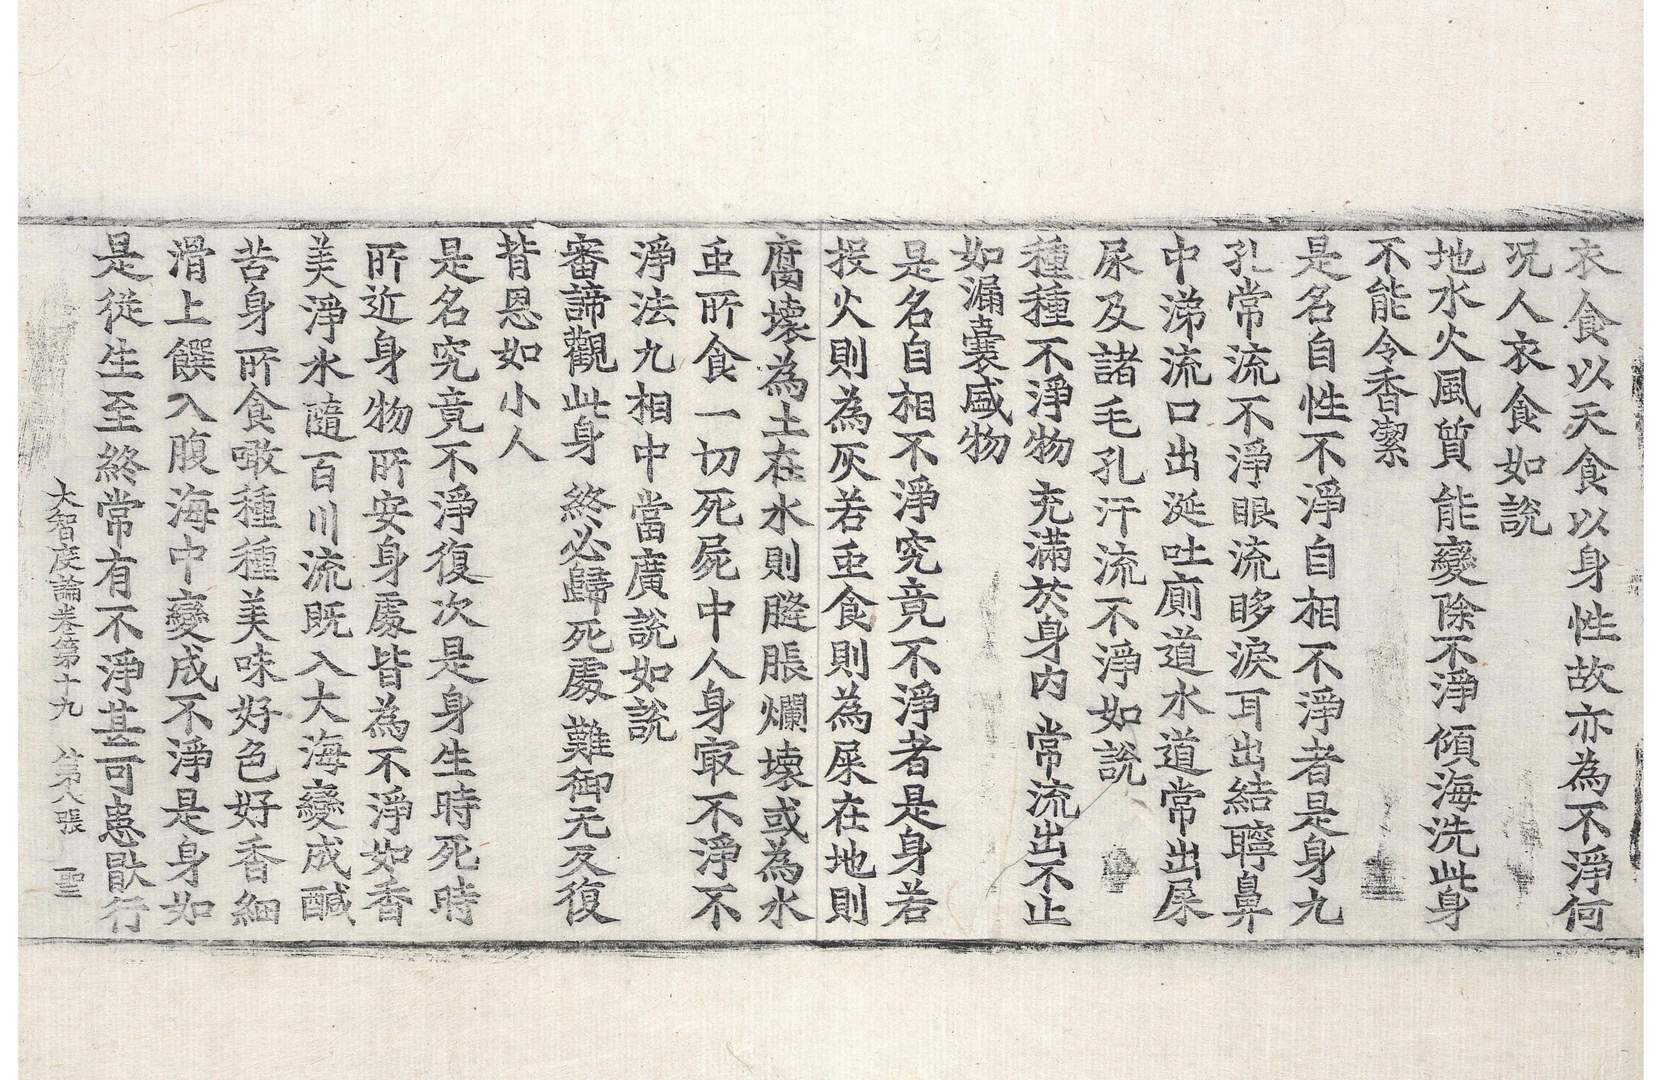 衣食以天食食以身性故亦為不淨何
況人衣食如說
地水火風質 能變除不淨 傾海洗此身
不能令香潔
是名自性不淨自相不淨者是身九
孔常流不淨眼流眵淚耳出結聹鼻
中涕流口出涎吐廁道水道常出屎
尿及諸毛孔汗流不淨如說
種種不淨物 充滿於身內 常流出不止
如漏囊盛物
是名自相不淨究竟不淨者是身若
投火則為灰若虫食則為屎在地則
腐壞為土在水則膖脹爛壞或為水
虫所食一切死屍中人身㝡不淨不
淨法九相中當廣說如說
審諦觀此身 終必歸死處 難御无反復
背恩如小人
是名究竟不淨復次是身生時死時
所近身物所安身處皆為不淨如香
美淨水隨百川流既入大海變成醎
苦身所食噉種種美味好色好香細
滑上饌入腹海中變成不淨是身如
是從生至終常有不淨甚可患猒行
大智度論卷第十九 第八張 聖